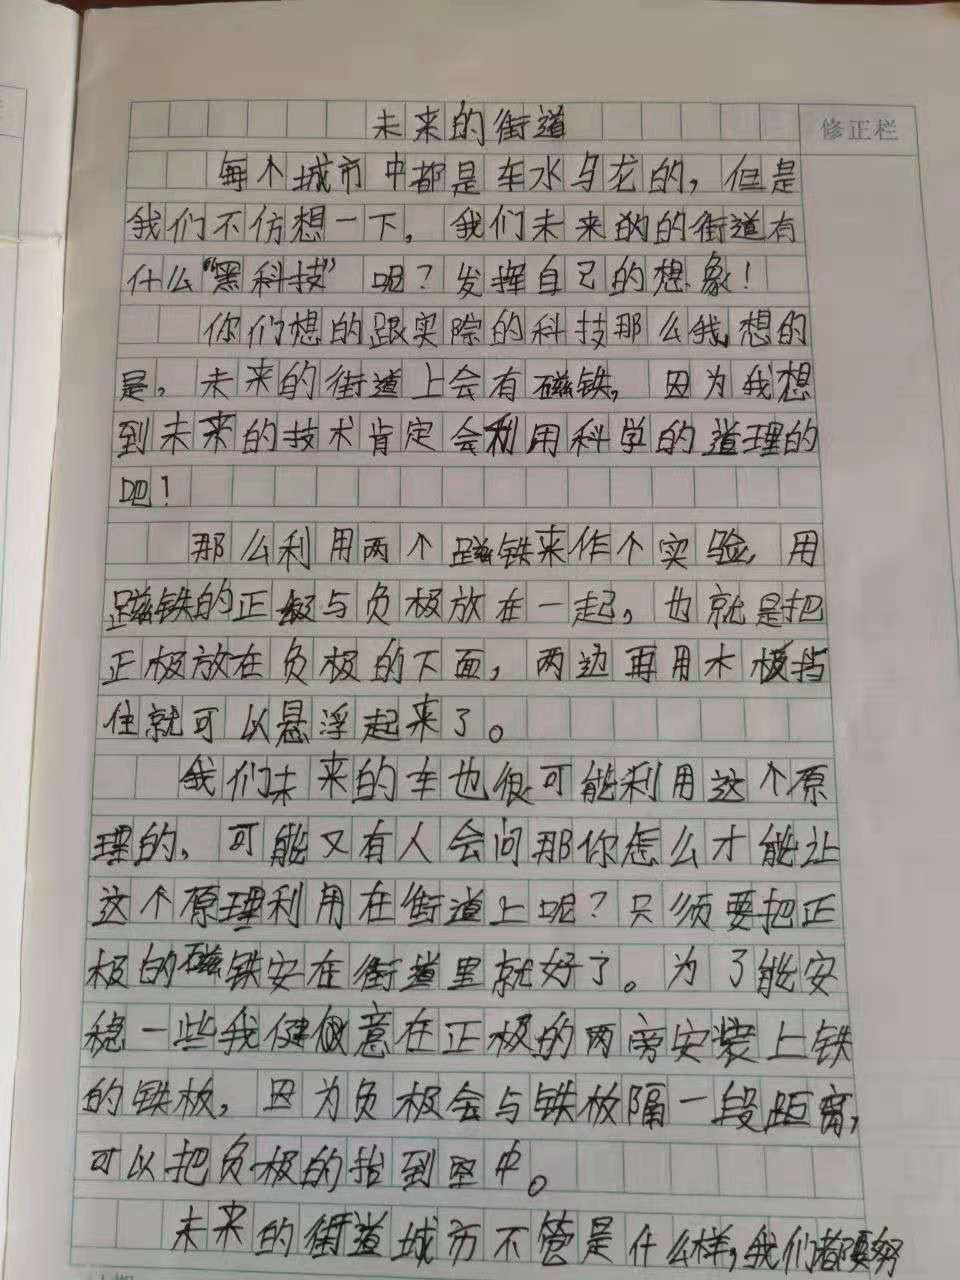 未来的街道
修正栏
每个城市中都是车水马龙的，但是
我们不仿想一下，我们未来的的街道有
什么“黑科技”呢？发挥自己的想象！
你们想的跟实际的科技那么我想的
是，未来的街道上会有磁铁，因为我想
到未来的技术肯定会利用科学的道理的
吧！
那么利用两个磁铁来作个实验，用
磁铁的正极与负极放在一起，也就是把
正极放在负极的下面，两边再用木板挡
住就可以悬浮起来了。
我们未来的车也很可能利用这个原
理的，可能又有人会问那你怎么才能让
这个原理利用在街道上呢？只须要把正
极的磁铁安在街道里就好了。为了能安
稳一些我健议意在正极的两旁安装上铁
的铁板，因为负极会与铁板隔一段距离，
可以把负极的抬到空中。
未来的街道城市不管是什么样，我们都要努